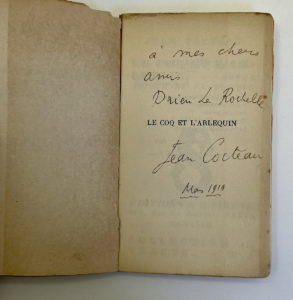 à mes chers
amis
Drieu La Rochelle
LE COQ ET L'ARLEQUIN
Jean Cocteau
Mars 1919